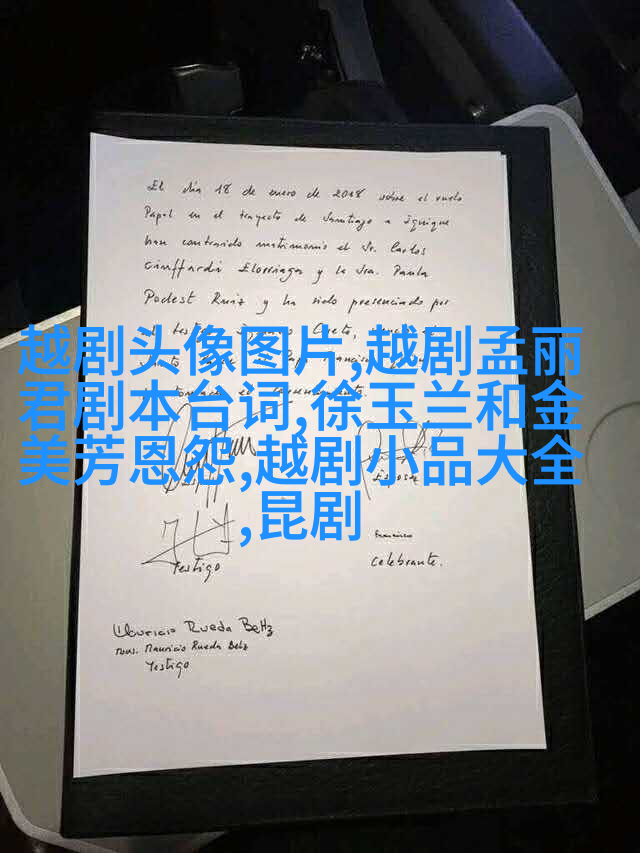 El día 18 de enero de 2018 sobre el vuelo
Papal en el trayecto de Santiago a Iquique
han contraido matrimonio el Sr. Carlos
Ciuffardi Elorriaga y la Sra. Paula
Podest Ruiz y ha sido presenciado por
越剧头像图片,越剧孟丽
君剧本台词,徐玉兰和金
美芳恩怨,越剧小品大全
,昆剧
Esposa
Testigo
Francisco
Celebrante.
Mauricio Rueda Beltz
Mons. Mauricio Rueda Beltz
Testigo